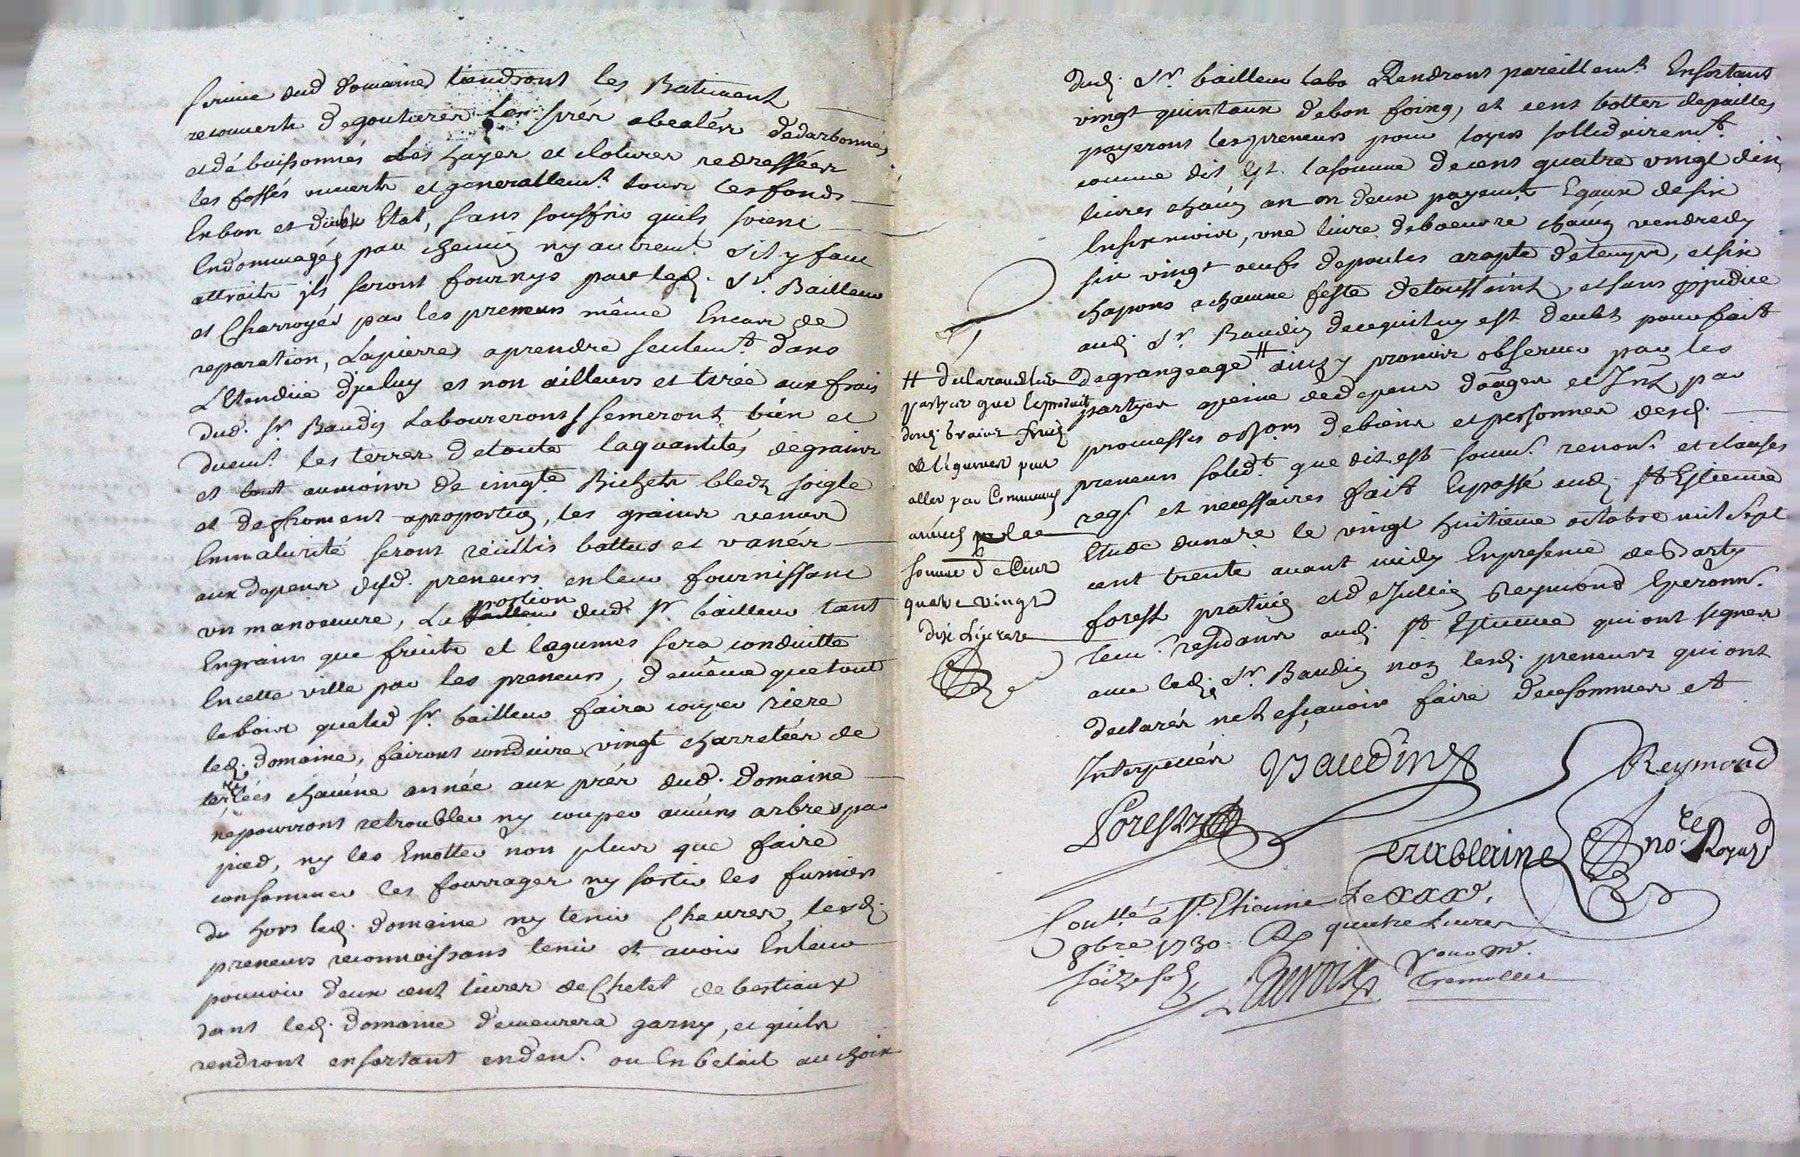 ferme dud domaine tiendront les Batiment
recouverts degoutieres les prés abealés dedarbonnés
et débuissonnés les hayes et clotures redressées
les fossés ouverts et generallemt. tous les fonds
En bon et dub Etat, sans souffrir quils soient
Endommagés par chemin ny autremt. s'il y faut
attraits ils seront fournys par led. Sr. Bailleur
et Charroyés par les preneurs même En cas de
reparation, Lapierre a prendre seulemt. dans
L'Etendüe d'yceluy et non ailleurs et tirée aux frais
dud. Sr. Baudin Laboureront semeront bien et
duemt. les terres de toute la quantités de grains
et tout aumoins de vingts Bichets bled soigle
et de froment a proportion, les grains venus
En maturité seront ceuillis battus et vanés
aux depens desd. preneurs en leur fournissant
un manoeuvre, La portion dud. Sr. bailleur tant
En grains que fruits et legumes sera conduitte
En cette ville par les preneurs, de même que tout
le bois queled Sr. bailleur faira couper riere
led. domaine, fairont conduire vingt charretées de
terres chacune année aux prés dud. domaine
ne pourront retroubler ny couper aucuns arbres par
pied, ny les Emotter non plus que faire
consommer les fourrages ny sortir les fumiers
de hors led. domaine ny tenir Chevres, lesd.
preneurs reconnoissans tenir et avoir En leur
pouvoir deux cent livres de Chetel de bestiaux
dont led. domaine demeurera garny, et quils
rendront en sortant en den. ou En betail au choix
dud. Sr. bailleur Rendront pareillemt. En sortant
vingt quintaux de bon foing, et cent bottes de pailles
payeront les preneurs pour loyer sollidairemt.
comme dit Est. la somme de cent quatre vingt dix
livres chacun an en deux payemts. Egaux de six
En six mois, une livre de boeurre chacun vendredy
six vingt oeufs de poules a rapte de temps, et six
chapons a chacune feste de toussaint, et sans prejudice
aud. Sr. Baudin de ce qui luy est deubt pour fait
degrangeage # ainsy promis observer par les
partyes a peine de depens domages et Int. par
promesses ossons de biens et personnes desd.
preneurs solidt. que dit est soum. renon. et clauses
req. et necessaires fait Et passé aud. St. Estienne
Etude du nore le vingt huitieme octobre mil sept
cent trente avant midy En presence de Barty
forest praticien et de Jullien Reymond Eperonn.
tem. residans aud. St. Estienne qui ont signés
avec led. Sr. Baudin non lesd. preneurs qui ont
declarés ne le sçavoir faire de ce sommes et
Interpellés
# declarant les
partyes que le produit
desd. grains fruits
et legumes peut
aller par Communes
années a la
somme de Cent
quatre vingt
dix Livres
Baudin
Reymond
Forest
Crableine
nore. Royal
Conllé a St. Etienne Le xxxe.
8bre 1730. R quatre Livres
seize sols
Tremollier